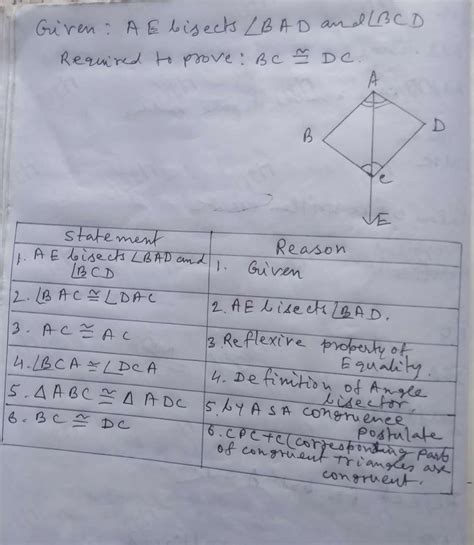 Given: AE bisects ∠BAD and ∠BCD
Required to prove: BC ≅ DC.
A
B
D
C
E
Statement
Reason
1. AE bisects ∠BAD and
∠BCD
1. Given
2. ∠BAC ≅ ∠DAC
2. AE bisects ∠BAD.
3. AC ≅ AC
3 Reflexive property of
Equality.
4. ∠BCA ≅ ∠DCA
4. Definition of Angle
bisector.
5. △ABC ≅ △ADC
5. by ASA congruence
postulate
6. BC ≅ DC
6. CPCTC (corresponding parts
of congruent triangles are
congruent.